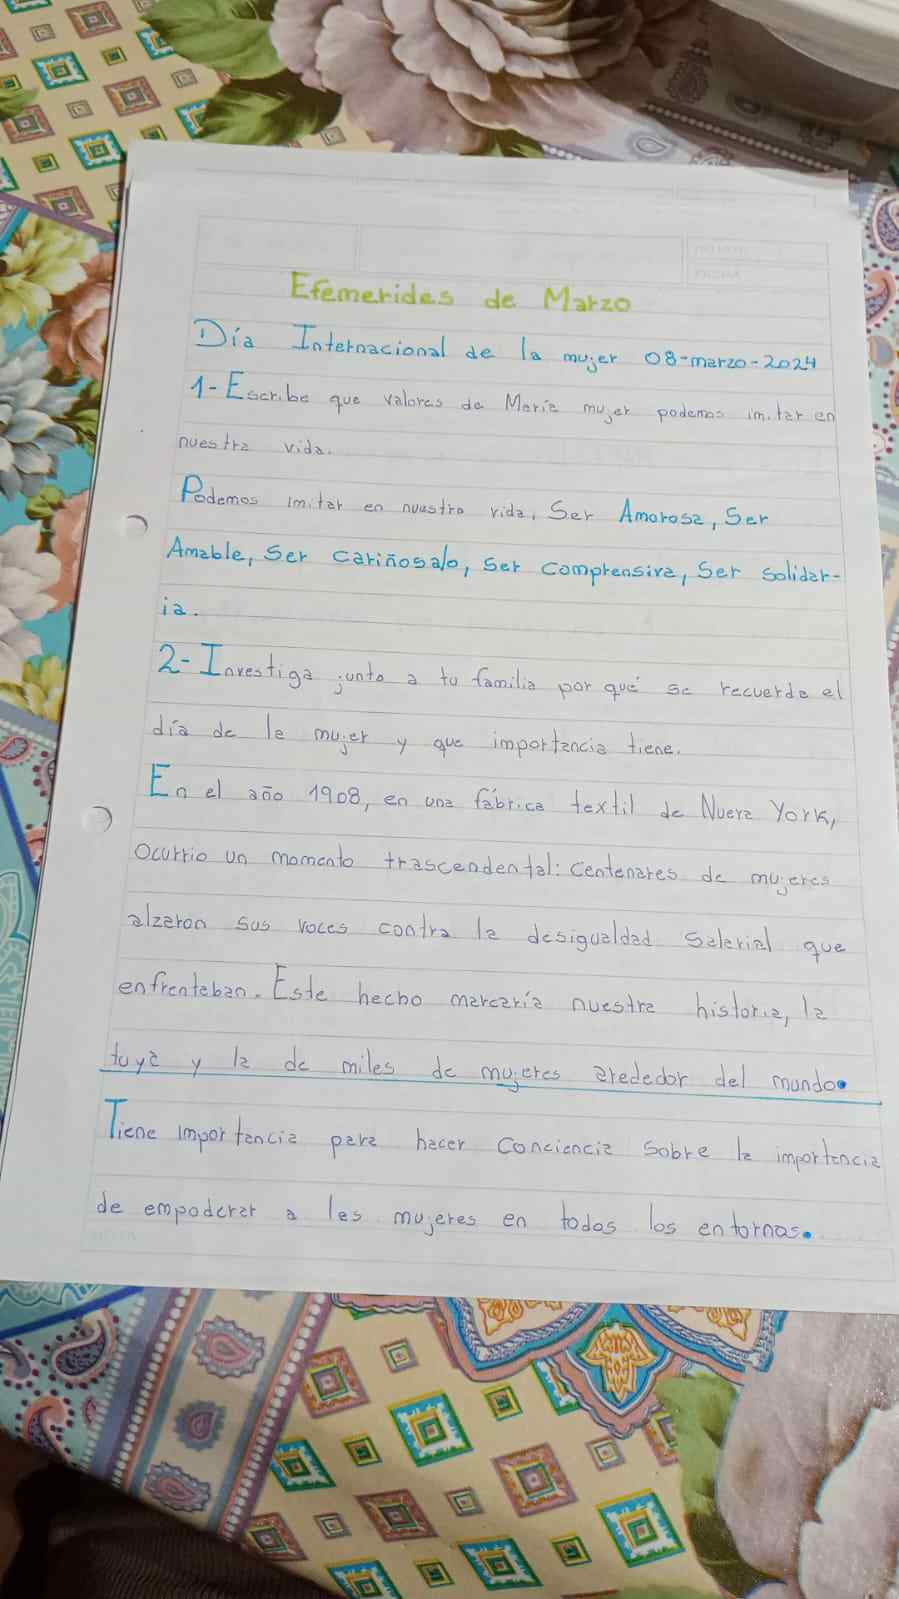 Efemerides de Marzo
Día Internacional de la mujer 08-marzo-2024
1-Escribe que valores de María mujer podemos imitar en
nuestra vida.
Podemos imitar en nuestra vida, Ser Amorosa, Ser
Amable, Ser cariñosa/o, ser comprensiva, Ser solidar-
ia.
2-Investiga junto a tu familia por qué se recuerda el
día de la mujer y que importancia tiene.
En el año 1908, en una fábrica textil de Nueva York,
Ocurrio un momento trascendental: Centenares de mujeres
alzaron sus voces contra la desigualdad Salarial que
enfrentaban. Este hecho marcaría nuestra historia, la
tuya y la de miles de mujeres arededor del mundo.
Tiene importancia para hacer Conciencia Sobre la importancia
de empoderar a les mujeres en todos los entornos.